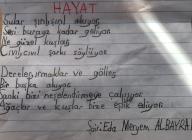 HAYAT
Sular şırıl şırıl akıyor,
Sesi buraya kadar geliyor.
Ne güzel kuşlar,
Cıvıl cıvıl şarkı söylüyor.
Dereler, ırmaklar ve göller,
Bir başka akıyor.
Sanki bizi neşelendirmeye çalışıyor,
Ağaçlar ve kuşlar bize eşlik ediyor.
Şiir: Eda Meryem ALBAYRAK